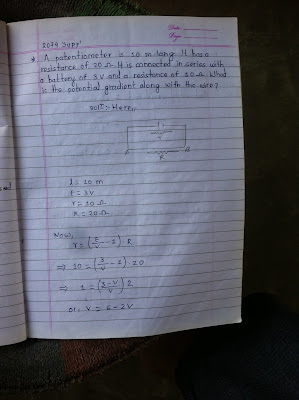 Date:
Page:
2079 Supp'
* A potentiometer is 10 m long. It has a
resistance of 20 Ω. It is connected in series with
a battery of 3 V and a resistance of 10 Ω. What
is the potential gradient along with the wire?
Solⁿ:- Here,
R
l = 10 m
E = 3V
r = 10 Ω
R = 20 Ω
Now,
r = (E/V - 1) R
⇒ 10 = (3/V - 1) 20
⇒ 1 = (3-V/V) 2
or, V = 6 - 2V